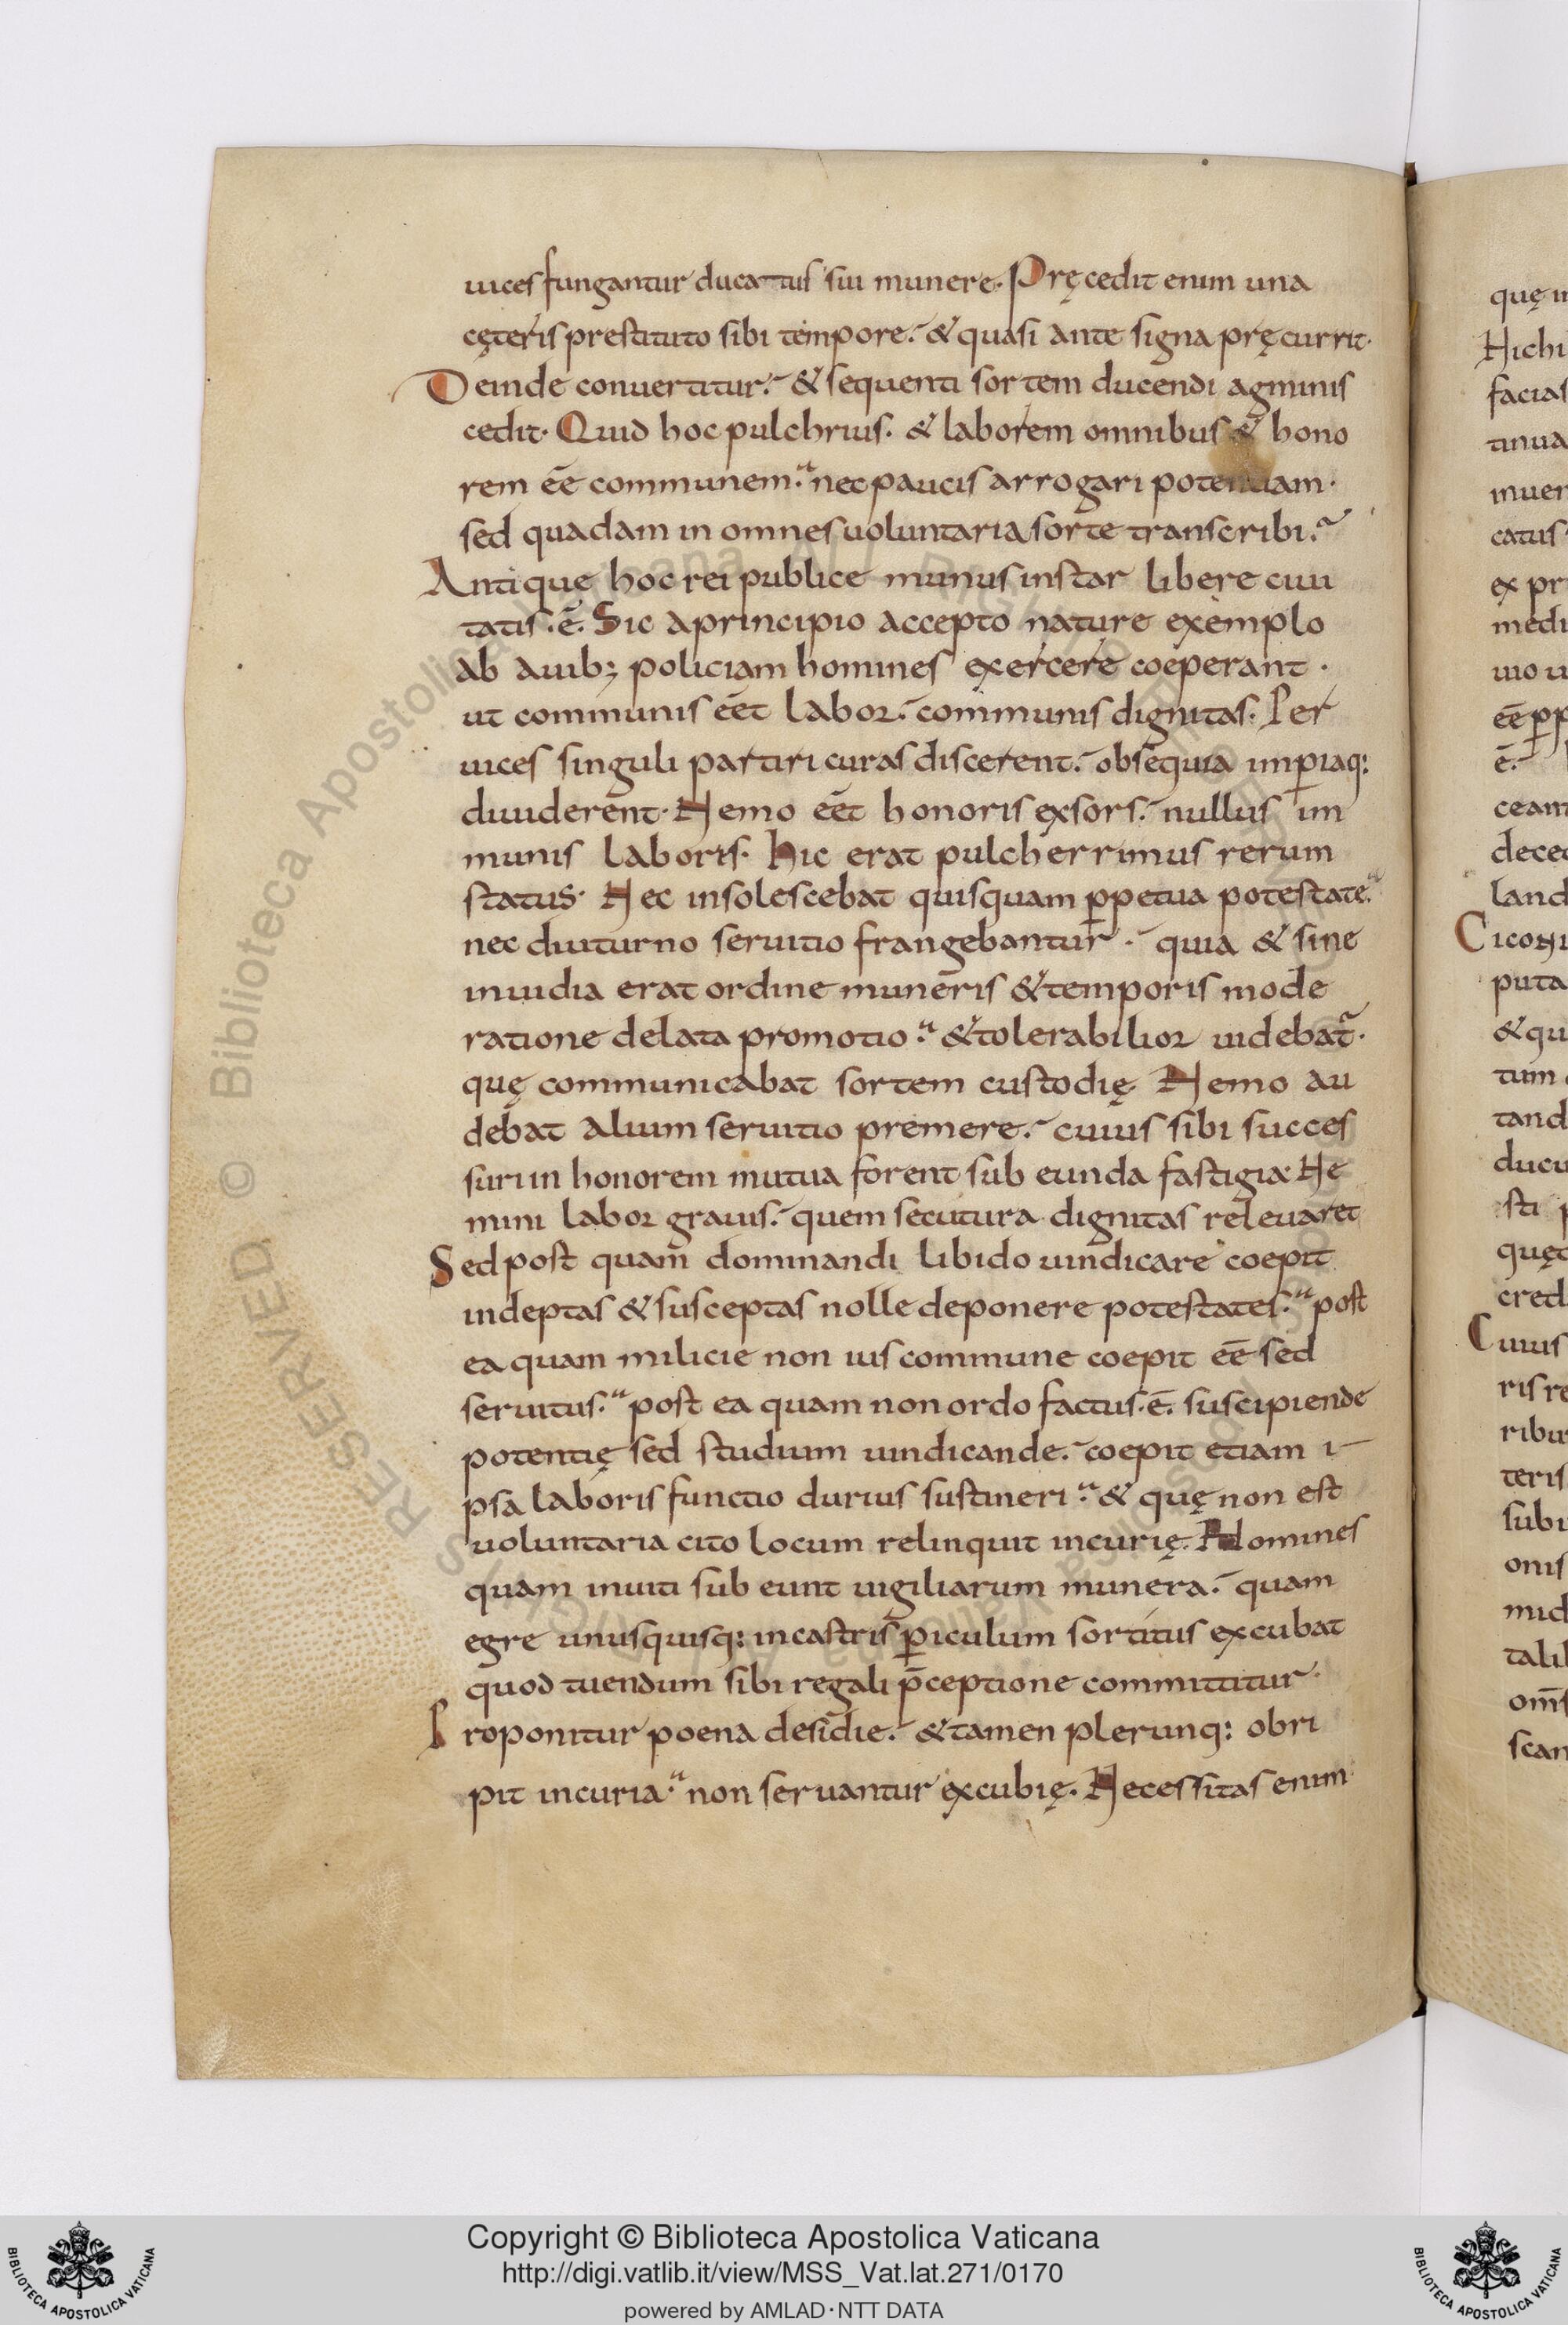 uices fungantur ducatus sui munere. Pręcedit enim una
cęteris prestituto sibi tempore. & quasi ante signa pręcurrit.
Deinde conuertitur. & sequenti sortem ducendi agminis
cedit. Quid hoc pulchrius. & laborem omnibus & hono
rem eē communem. nec paucis arrogari potentiam.
sed quadam in omnes uoluntaria sorte transcribi.
Antique hoc rei publice munus instar libere ciui
tatis .ē. Sic a principio accepto nature exemplo
ab auib; policiam homines exercere coeperant.
ut communis eēt labor. communis dignitas. Per
uices singuli partiri curas discerent. obsequia imp̱iaq:
diuiderent. Nemo eēt honoris exsors. nullus im
munis laboris. hic erat pulcherrimus rerum
status. Nec insolescebat quisquam p̱petua potestate.
nec diuturno seruitio frangebantur. quia & sine
inuidia erat ordine muneris & temporis mode
ratione delata promotio. & tolerabilior uidebat̃.
quę communicabat sortem custodię. Nemo au
debat alium seruitio premere. cuius sibi succes
suri in honorem mutua forent sub eunda fastigia. Ne
mini labor grauis. quem secutura dignitas releuaret
Sed post quam dominandi libido uindicare coepit
indeptas & susceptas nolle deponere potestates. post
ea quam milicie non ius commune coepit eē sed
seruitus. post ea quam non ordo factus .ē. suscipiende
potentię sed studium uindicande. coepit etiam i
psa laboris functio durius sustineri. & quę non est
uoluntaria cito locum relinquit incurię. homines
quam inuiti sub eunt uigiliarum munera. quam
egre unusquisq: in castris p̱iculum sortitus excubat
quod tuendum sibi regali p̄ceptione committitur.
Proponitur poena desidie. & tamen plerunq: obri
pit incuria. non seruantur excubię. Necessitas enim
quę
Hichi
facias
tinua
inuen
catus
ex pr
medi
uio
eē p̱p
ē.
ceant
dece
land
Ciconi
puta
& qu
tum
tand
ducu
sti
quę
cred
Cuius
ris re
ribu
teris
subi
onis
mid
tali
om̄s
scan
© Biblioteca Apostolica Vaticana ALL RIGHTS RESERVED
Copyright © Biblioteca Apostolica Vaticana
http://digi.vatlib.it/view/MSS_Vat.lat.271/0170
powered by AMLAD·NTT DATA
BIBLIOTECA APOSTOLICA VATICANA
BIBLIOTECA APOSTOLICA VATICANA